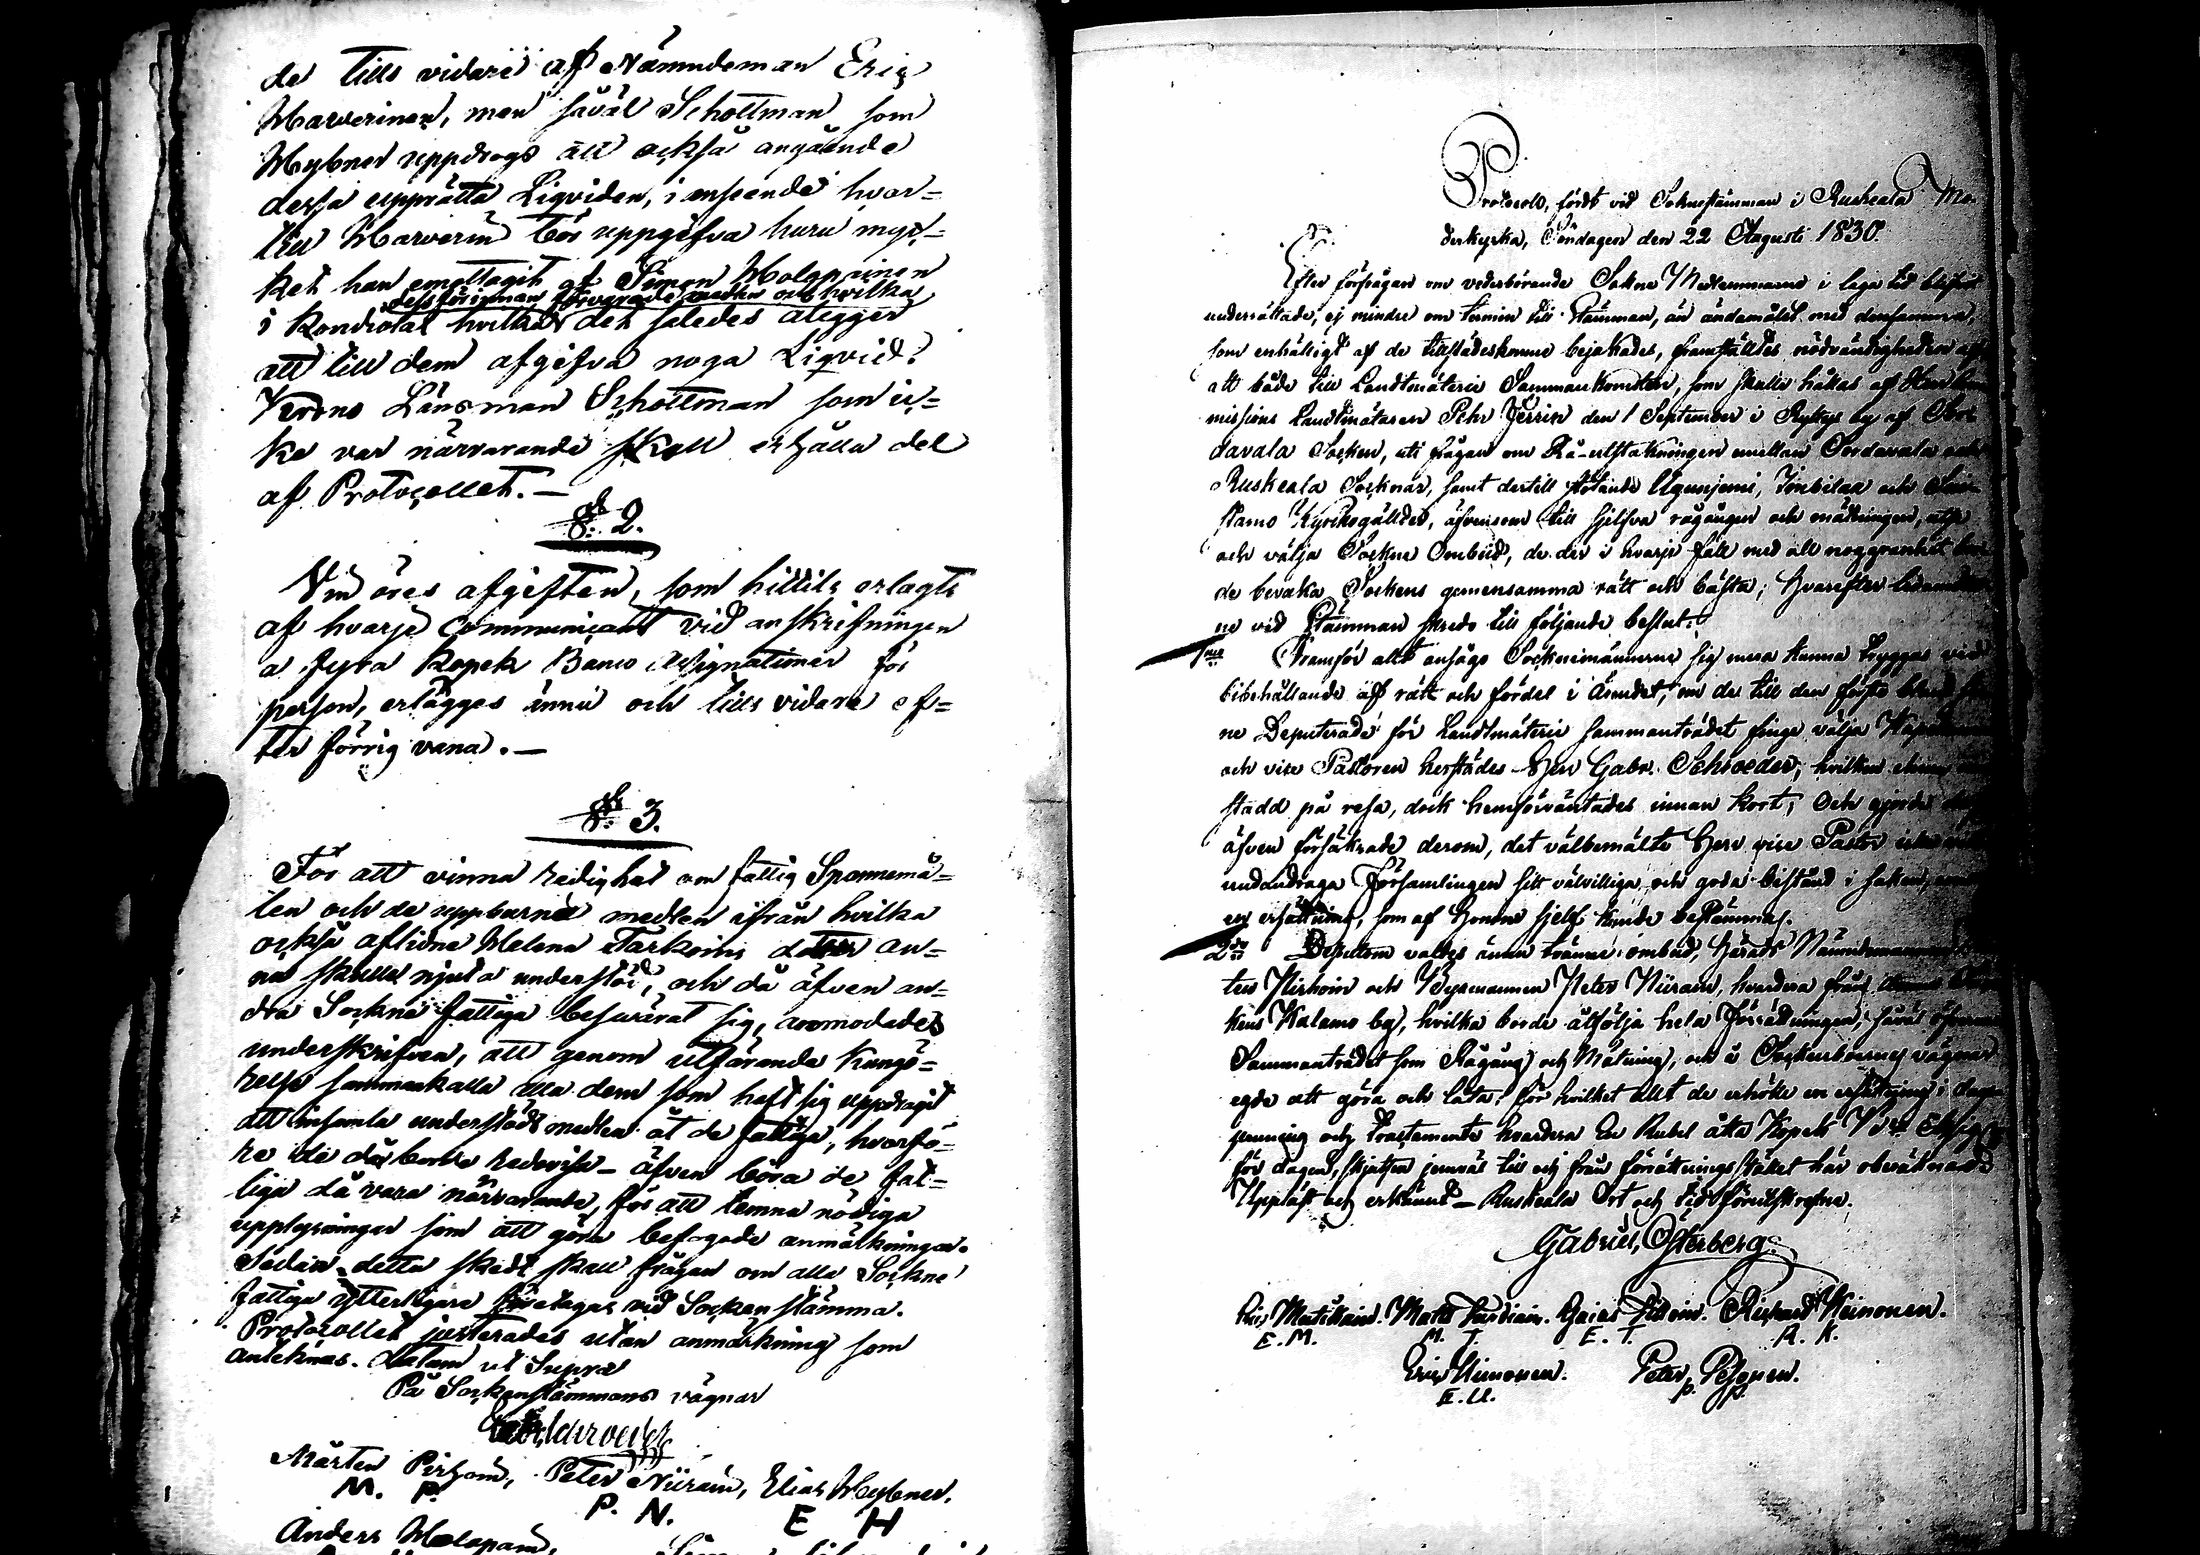 de tills vidare af Nämndeman Eric
Harverinen, men såväl Schottman som
Heybner uppdrogs att också angående
dessa upprätta Liqviden, i anseende hvar=
till Harverin bör uppgifva huru myc=
ket han emottagit af Simon Holopainen
dessförinnan förvarade medlen och hvilka
i Kondiolax hvilka det således ålegger
att till dem afgifva noga Liqvid.
Krono Länsman Schottman som ic=
ke var närvarande skall erhålla del
af Protocollet. —
§: 2.
Vin öres afgiften, som hittils erlagts
af hvarje Communicant vid anskrifningen
a fyra Kopek Banco Assignationer för
person, erlägges ännu och tills vidare ef=
ter förrig vana. —
§: 3.
För att vinna redighet om fattig Spannemå=
len och de uppburna medlen ifrån hvilka
också aflidne Helena Tarkoins dotter An=
na skulle njuta understöd, och då äfven an=
dra Sockne fattiga besvärat sig, acomodades
underskrifven, att genom utfärande Kungö=
relse sammankalla alla dem som haft sig uppdragit
att insamla understöds medlen åt de fattiga, hvarfö=
re de då borde redovisa – äfven böra de fat=
tiga då vara närvarande, för att lemna nödiga
upplysningar som att göra befogade anmärkningar.
Sedan detta skedt skall frågan om alla Sockne
fattiga ytterligare företagas vid Sockenstämma.
Protocollet justerades utan anmärkning som
antecknas. Datum ut Supra
På Sockenstämmans vägnar
Mårten Pirhoin, Peter Niirain, Elias Heybner.
M. P. P. N. E H
Anders Holopain,
Protocoll, fördt vid Soknestämman i Ruskeala Mo
derkyrka, Söndagen den 22 Augusti 1830.
Efter förfrågan om vederbörande Sokne Medlemmarne i laga tid blifvit
underrättade, ej mindre om termin till Stämman, än ändamålet med densamma,
som enhälligt af de tillstädeskomne bejakades, framställdes nödvändigheten af
att både till Landtmäteri Sammankomsten, som skulle hållas af Herr Com
missions Landtmätaren Pehr Ferrin den 1 September i Rytty by af Sor
davala Socken, uti frågan om Rå-utstakningen emellan Sordavala och
Ruskeala Socknar, samt dertill stötande Uguniemi, Imbilax och Sui
stamo Kyrkogälldar, äfvensom till sjelfva rågången och mätningen, utse
och välja Sockne Ombud, de der i hvarje fall med all noggranhet bor
de bevaka Sockens gemensamma rätt och bästa; hvarefter ledamöter
ne vid Stämman skredo till följande beslut:
1mo Framför allt ansågo Sockneimännerne sig mera kunna tryggas vid
bibehållande af rätt och fördel i ämnet, om de till den första bland si
ne Deputerade för Landtmäteri sammanträdet finge välja Kapellanen
och vice Pastoren herstädes Herr Gabr. Schroeder, hvilken ehuru
stadd på resa, dock hemförväntades innan kort; Och gjorde
äfven försäkrade derom, det välbemälte Herr vice Pastor icke
undandraga Församlingen sitt välvilliga och goda bistånd i saken, emot
en ersättning, som af honom sjelf kunde bestämmas.
2do Desutom valdes ännu tvänne ombud, Härads Nämndemannen
ten Pirhoin och Bysmannen Peter Niirain, hvardera från
kens Kalamo by, hvilka borde åtfölja hela förrättningen, såväl
Sammanträdet som Rågång och Mätning, och å Sockenboernes vägnar
egde att göra och låta; för hvilket allt de erhölle en ersättning i dag
penning och Tractamente hvardera En Rubel åtta Kopek
för dagen, skjutsen jemväl till och från förrättningsstället här oberäknad.
Uppläst och erkändt – Ruskeala Ort och tid förutskrefne.
Gabriel Österberg.
Eric Matikain. Mats Turtiain. Gaias Tiitoin. Richard Keinonen.
E. M. M. T. E. T. R. K.
Eric Uimonen. Peter Pesonen.
E. U. P. P.